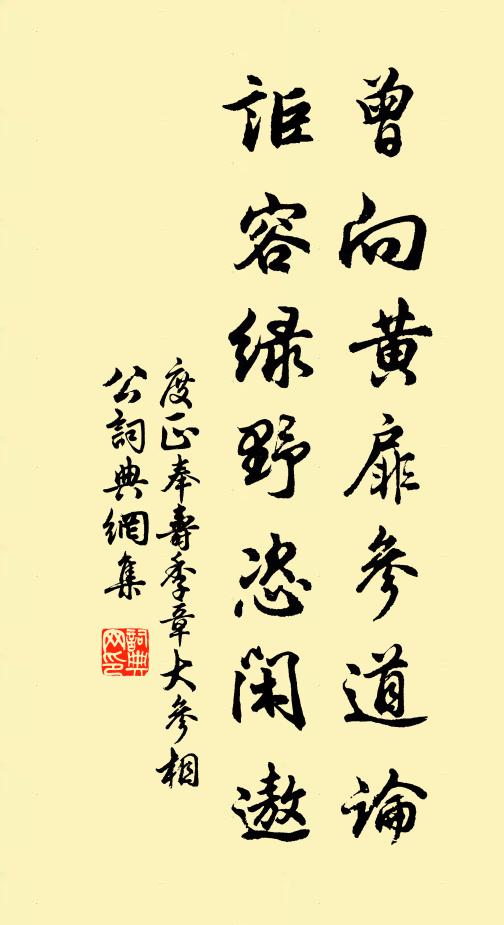 曾向黄扉參道論
詎容緑野恣閑遨
度正奉壽季章大參相
公詞典網集
詞典网印